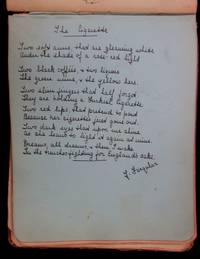 The Cigarette
Two soft arms that are gleaming white
Under the shade of a rose-red light
Two black coffees, & two liqueurs
The green mine, & the yellow hers.
Two slim fingers that half forget
They are holding a Turkish cigarette
Two red lips that pretend to pout
Because her cigarette's just gone out.
Two dark eyes that upon me shine
As she leans to light it again at mine.
Dreams, all dreams, & then I wake
In the trenches fighting for England's sake.